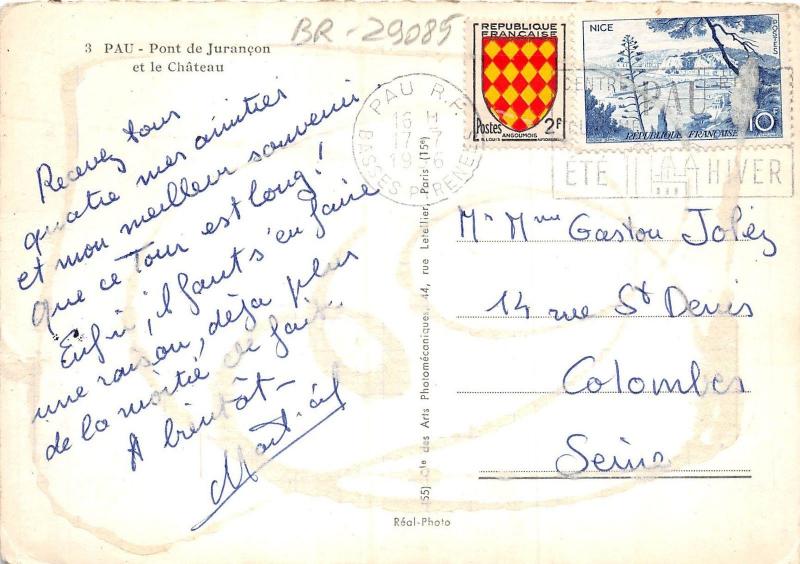 BR-29085
3 PAU - Pont de Jurançon
et le Château
Recevez tous
quatre mes amitiés
et mon meilleur souvenir
que ce Tour est long!
Enfin, il faut s'en faire
une raison, déjà plus
de la moitié de fait.
A bientôt -
Martial
PAU R.P.
16 H
17-7
19 6
BASSES PYRENEES
REPUBLIQUE
FRANÇAISE
Postes 2F
ANGOUMOIS
R. LOUIS
NICE
POSTES
REPUBLIQUE FRANÇAISE 10
CENTRE
PAU
ÉTÉ HIVER
Mr Mme Gaston Joléy
14 rue St Denis
Colombes
Seine
(55) Cie des Arts Photomécaniques, 44, rue Letellier, Paris (15e)
Réal-Photo